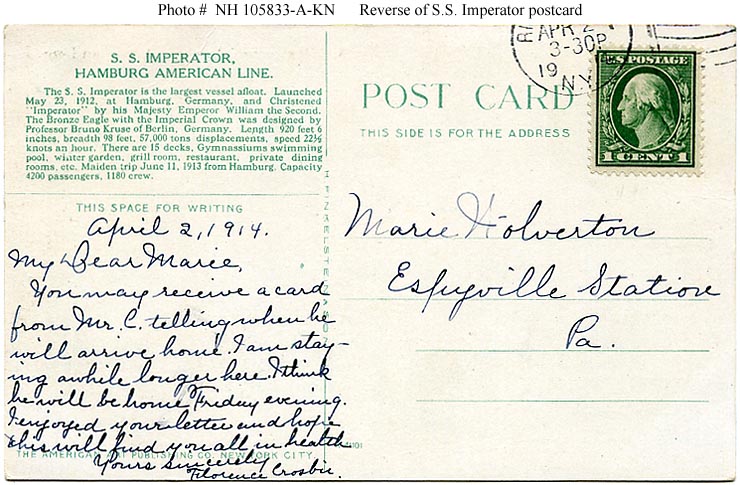 Photo #  NH 105833-A-KN      Reverse of S.S. Imperator postcard
S. S. IMPERATOR,
HAMBURG AMERICAN LINE.
The S. S. Imperator is the largest vessel afloat. Launched
May 23, 1912, at Hamburg, Germany, and Christened
"Imperator" by his Majesty Emperor William the Second.
The Bronze Eagle with the Imperial Crown was designed by
Professor Bruno Kruse of Berlin, Germany. Length 920 feet 6
inches, breadth 98 feet, 57,000 tons displacements, speed 22½
knots an hour. There are 15 decks, Gymnassiums swimming
pool, winter garden, grill room, restaurant, private dining
rooms, etc. Maiden trip June 11, 1913 from Hamburg. Capacity
4200 passengers, 1180 crew.
THIS SPACE FOR WRITING
April 2, 1914.
My Dear Marie,
You may receive a card
from Mr. C. telling when he
will arrive home. I am stay-
ing awhile longer here. I think
he will be home Friday evening.
I enjoyed your letter and hope
this will find you all in health
Yours sincerely
Florence Crosbie.
THE AMERICAN ART PUBLISHING CO. NEW YORK CITY.
POST CARD
THIS SIDE IS FOR THE ADDRESS
APR 2
3-30P
19
N.Y.
U.S. POSTAGE
1 CENT 1
Marie Holverton
Espyville Station
Pa.